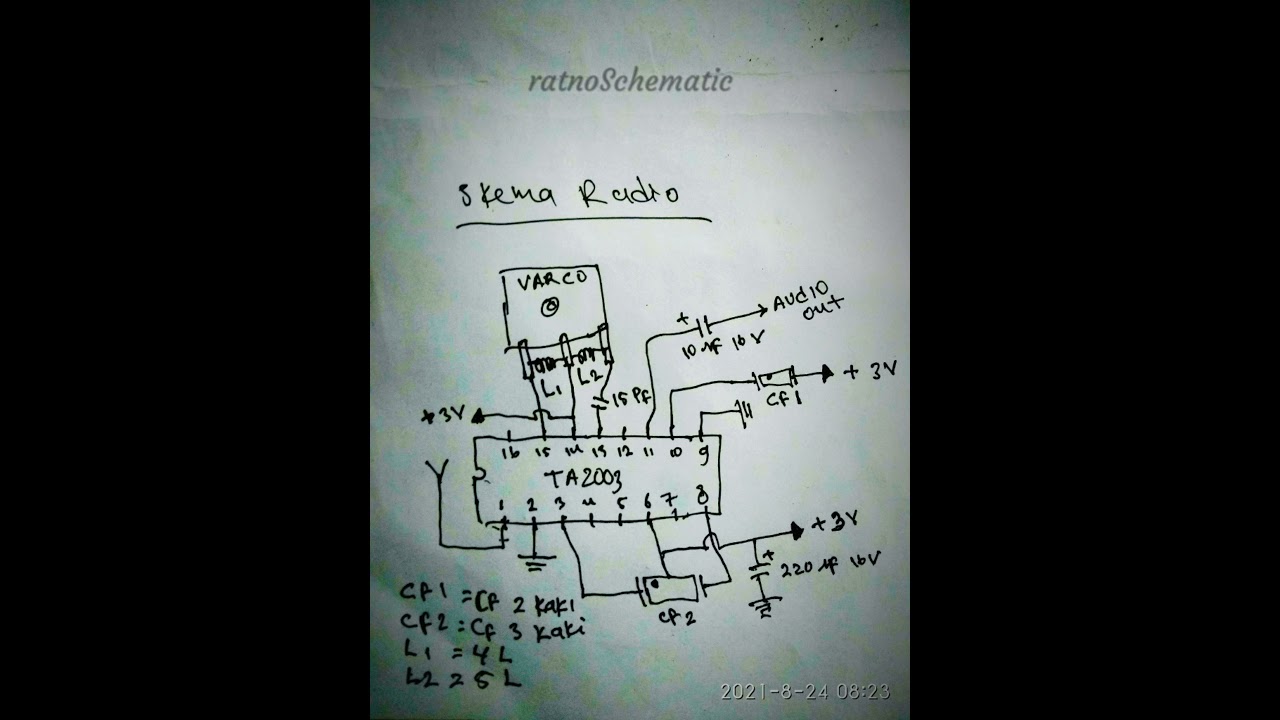 ratnoSchematic
Skema Radio
VARCO
L1
L2
15 PF
+
10 µf 16 V
AUDIO
out
Cf1
+ 3V
+3V
16 15 14 13 12 11 10 9
TA2003
1 2 3 4 5 6 7 8
+3V
+
220 µf 16V
Cf2
Cf1 = Cf 2 kaki
Cf2 = Cf 3 kaki
L1 = 4 L
L2 = 5 L
2021-8-24 08:23